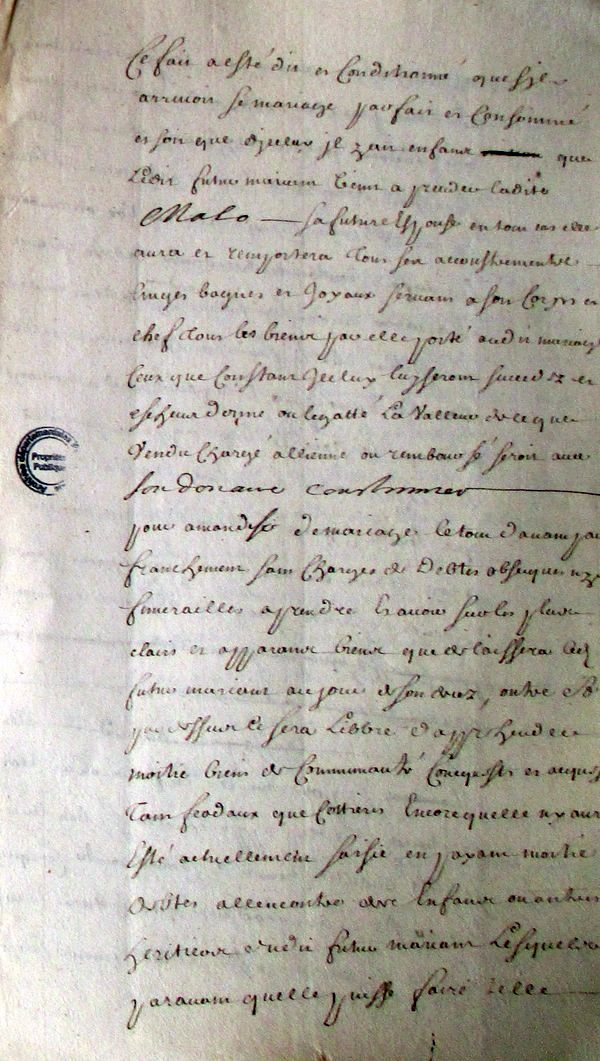 Ce fait a esté dit et Conditionné que sil
arrivoit le mariage parfait et Consommé
et soit que dyceluy jl y ait enfans ou que
Ledit futur mariant vient a predeceder ladite
Malo sa future Espouse en tout cas elle
aura et remportera Tous ses accoustrements
Linges bagues et Joyaux servans a son Corps et
chef Tous les biens par elle porté audit mariage
Ceux que Constant Jceluy luy seront succedez et
escheus donné ou legatté La Valleur de ce que
Vendu Chargé allienné ou rembourssé seroit avec
son douaire coustumier
pour amendise de mariage le tout davant part
franchement sans Charges de Debtes obseques ny
funerailles a prendre Et avoir sur les plus
clairs et apparans biens que delaissera led
futur mariant au jour de son decez, outre Et
par dessus Ce sera Libre d'apprehender
moitié biens de Communauté Conquests et acquests
Tant feodaux que Cottiers Encore quelle ny auroit
Esté actuellement saisie en payant moitié
debtes allencontre des Enfans ou autres
heritiers dudit futur mariant Lesquels
paravant quelle puisse faire telle
Archives départementales
Propriété
Publique